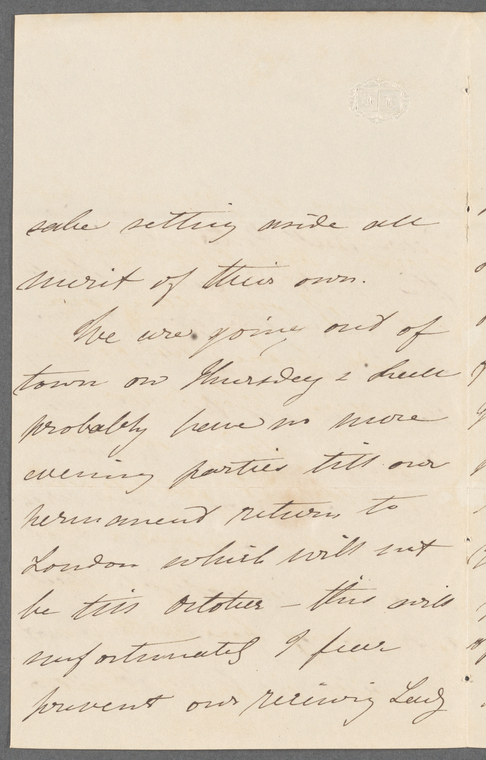 sake setting aside all
merit of their own.
We are going out of
town on Thursday & shall
probably have no more
evening parties till our
permanent return to
London which will not
be till October – this will
unfortunately I fear
prevent our receiving Lady